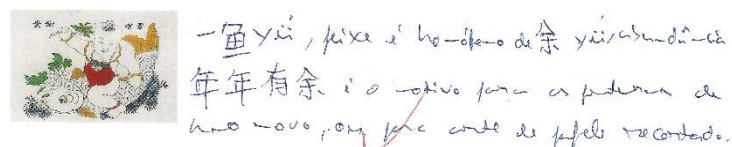 一鱼 yú, peixe é homófono de 余 yú, abundância
年年有余 é o motivo para as pinturas de
ano novo, ou para corte de papel recortado.